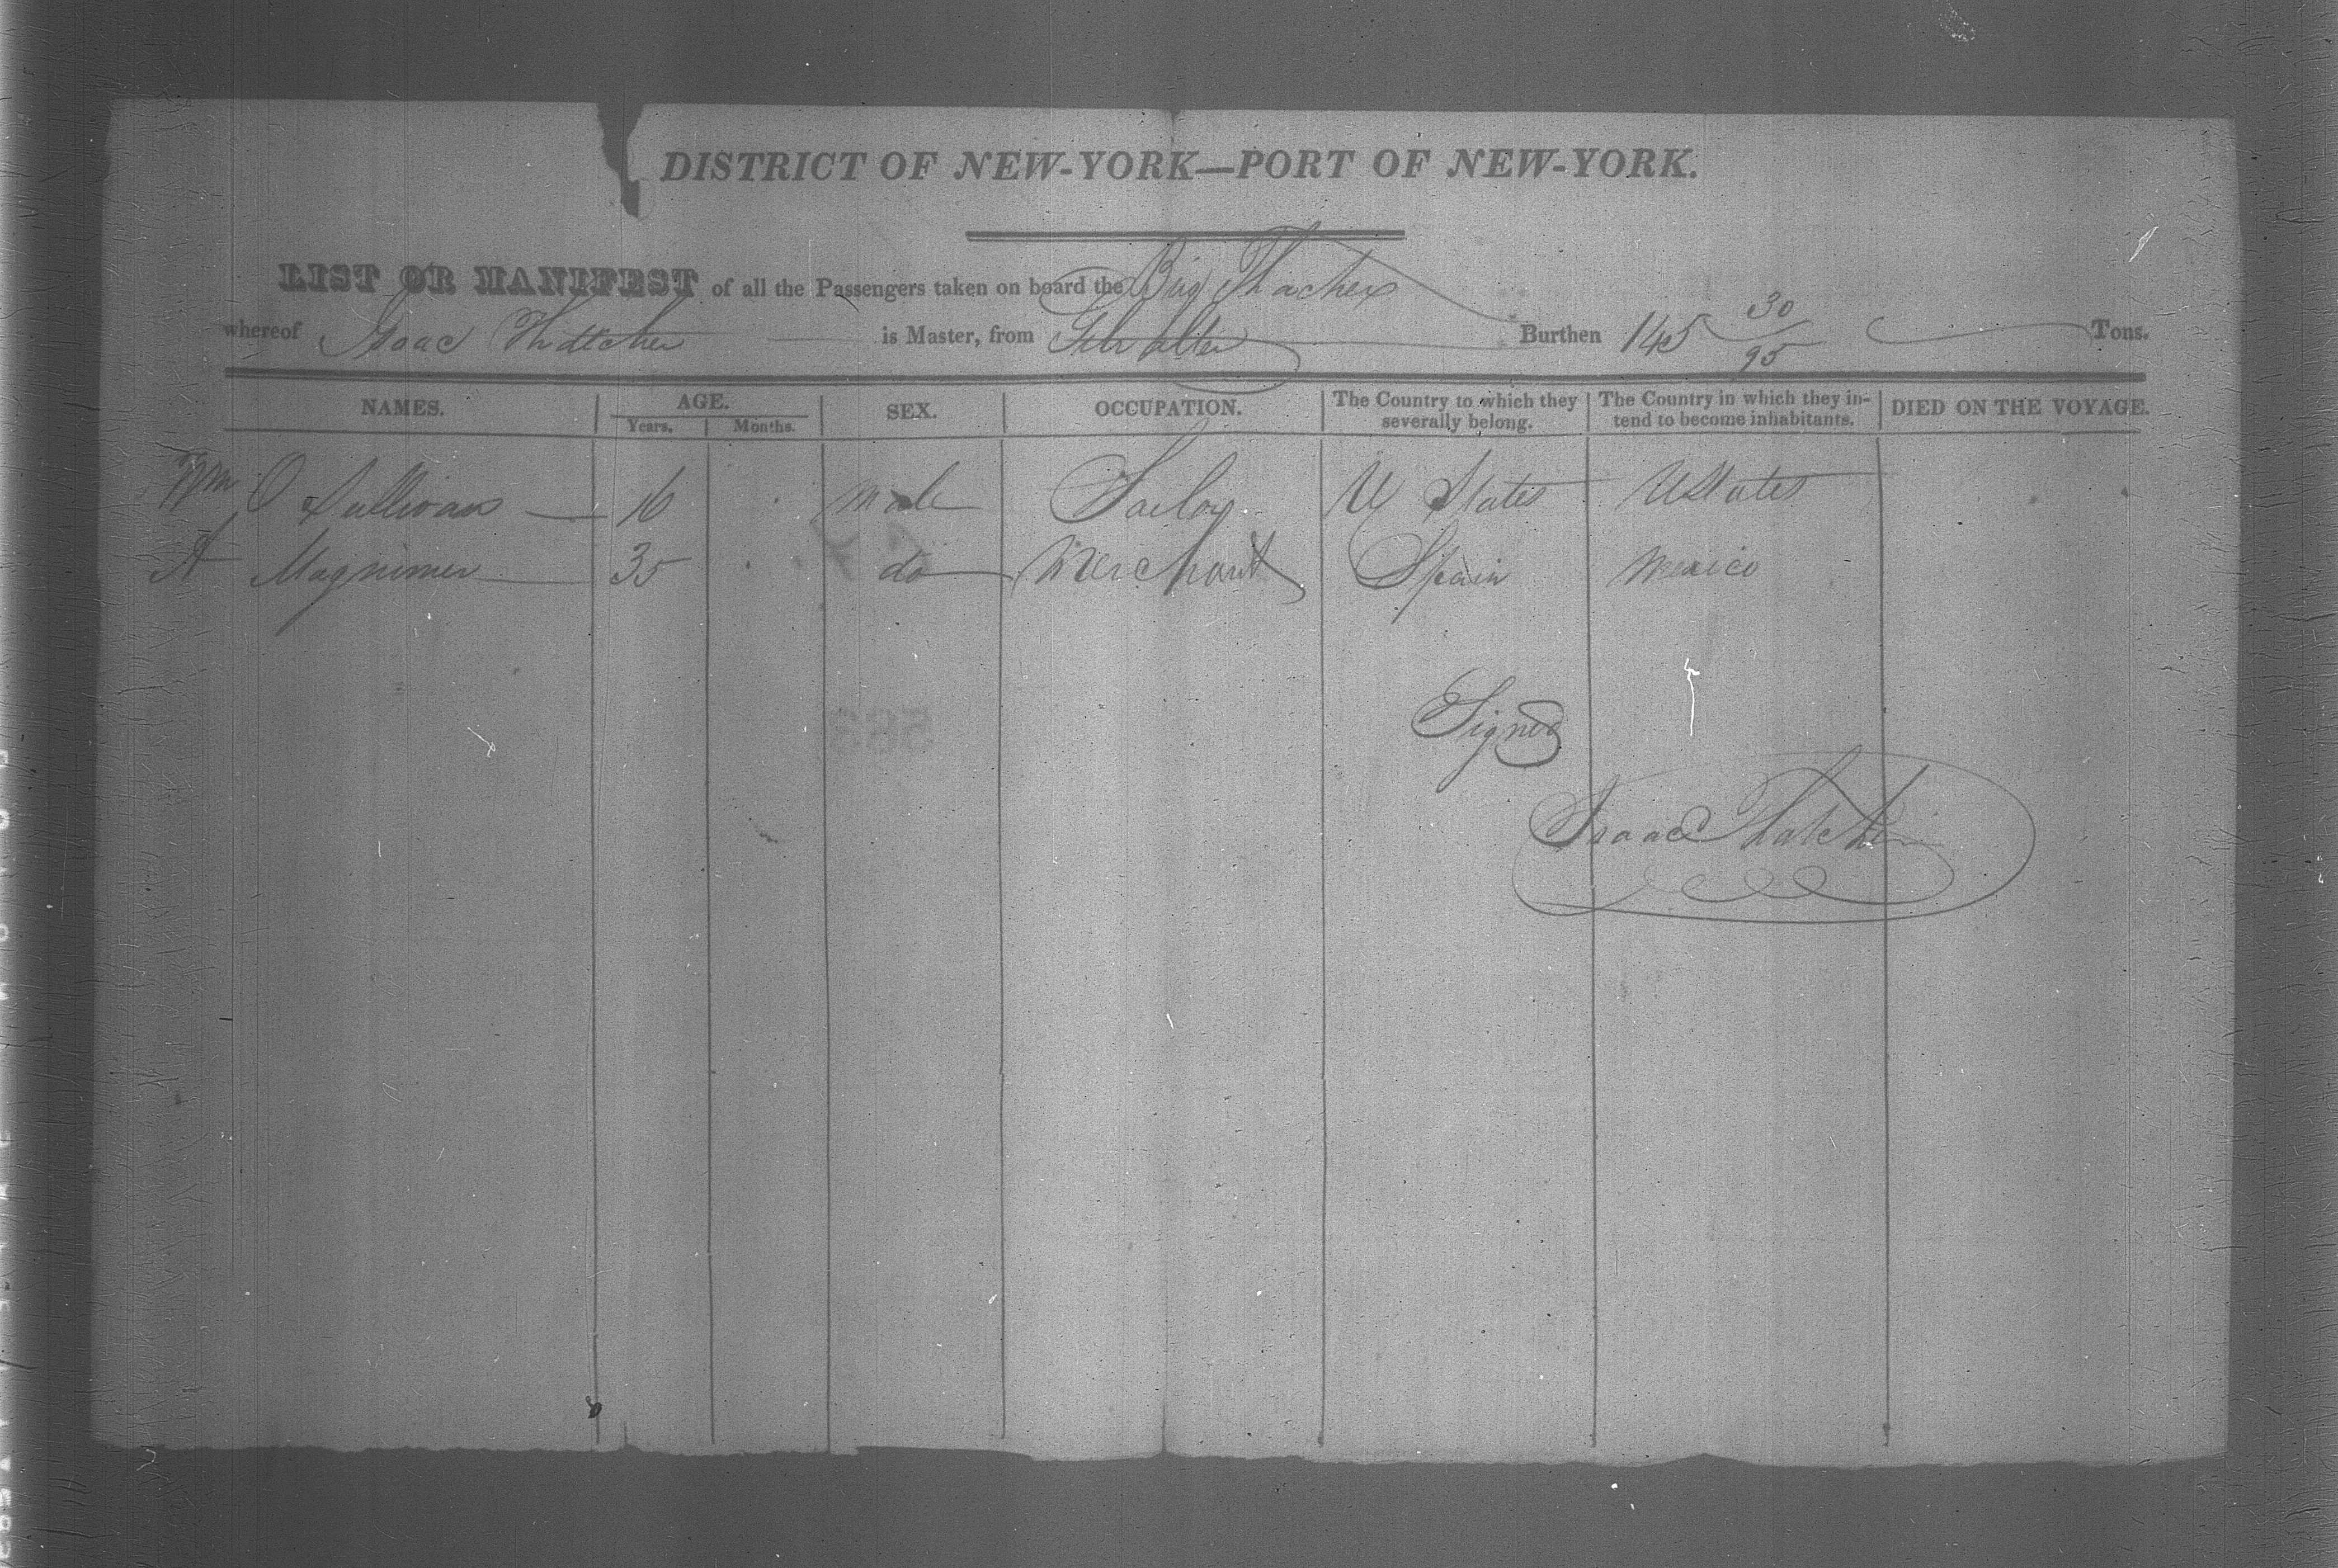 DISTRICT OF NEW-YORK—PORT OF NEW-YORK.
LIST OR MANIFEST of all the Passengers taken on board the Brig Thacher
whereof Isaac Thatcher is Master, from Gibralter Burthen 145 30/95 Tons.
NAMES. AGE. SEX. OCCUPATION. The Country to which they severally belong. The Country in which they intend to become inhabitants. DIED ON THE VOYAGE.
Years. Months.
Wm O Sullivan 16 male Sailor U States UStates
A Magnimer 35 do Merchant Spain Mexico
Signed
Isaac Thatcher